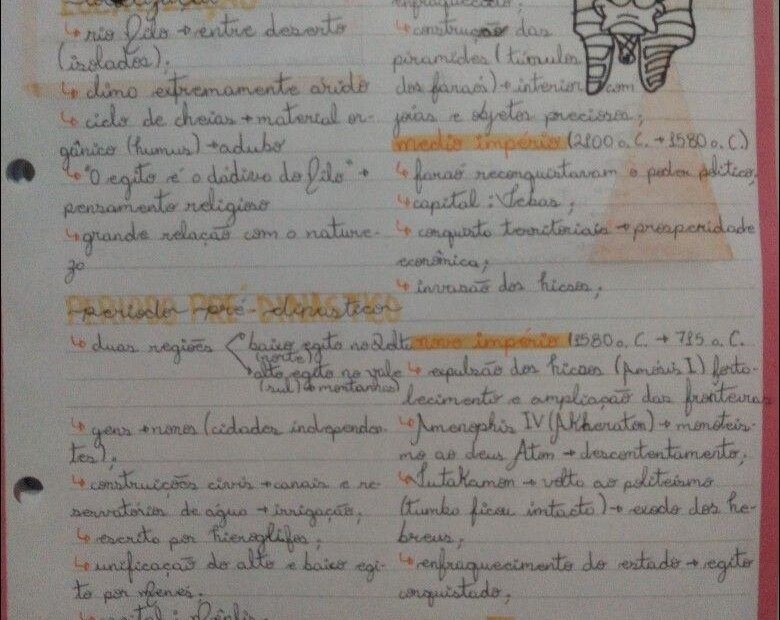 LOCALIZAÇÃO
↳ rio Nilo → entre deserto
(isolados);
↳ clima extremamente arido
↳ ciclo de cheias → material or-
gânico (humus) → adubo
↳ "O egito é a dádiva do Nilo" →
pensamento religioso
↳ grande relação com a nature-
za
PERIODO PRÉ-DINÁSTICO
periodo pré-dinastico
↳ duas regiões < baixo egito no Delta
(norte)
alto egito no vale
(sul) → montanhas
↳ gens → nomos (cidades independen-
tes);
↳ construicões civis → canais e re-
servatórios de agua → irrigação;
↳ escrita por hieroglifos;
↳ unificação do alto e baixo egi-
to por Menés;
↳ capital: Mênfis;
enfraquecido;
↳ construção das
piramides (túmulos
dos faraós) → interior com
joias e objetos preciosos;
medio império (2100 a.C. → 1580 a.C.)
↳ faraó reconquistavam o poder político;
↳ capital: Tebas;
↳ conquista territoriais → prosperidade
econômica;
↳ invasão dos hicsos;
novo império (1580 a.C. → 715 a.C.
↳ expulsão dos hicsos (Amósis I) forta-
lecimento e ampliação das fronteiras
↳ Amenophis IV (AKhenaton) → monoteis-
mo ao deus Aton → descontentamento;
↳ Tutakamon → volta ao politeísmo
(tumba ficou intacta) → exodo dos he-
breus;
↳ enfraquecimento do estado → egito
conquistado;